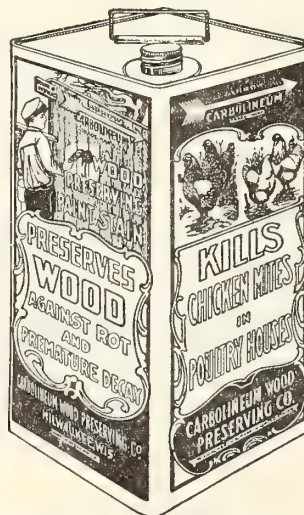 CARBOLINEUM
WOOD
PRESERVING
PAINT STAIN
PRESERVES
WOOD
AGAINST ROT
AND
PREMATURE DECAY
CARBOLINEUM WOOD PRESERVING CO
MILWAUKEE, WIS.
ARROW
CARBOLINEUM
KILLS
CHICKEN MITES
IN
POULTRY HOUSES
CARBOLINEUM WOOD
PRESERVING CO.